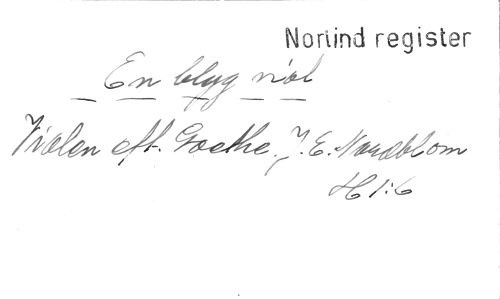 Norlind register
En blyg viol
Violen eft. Goethe. J. E. Nordblom
H 1:6